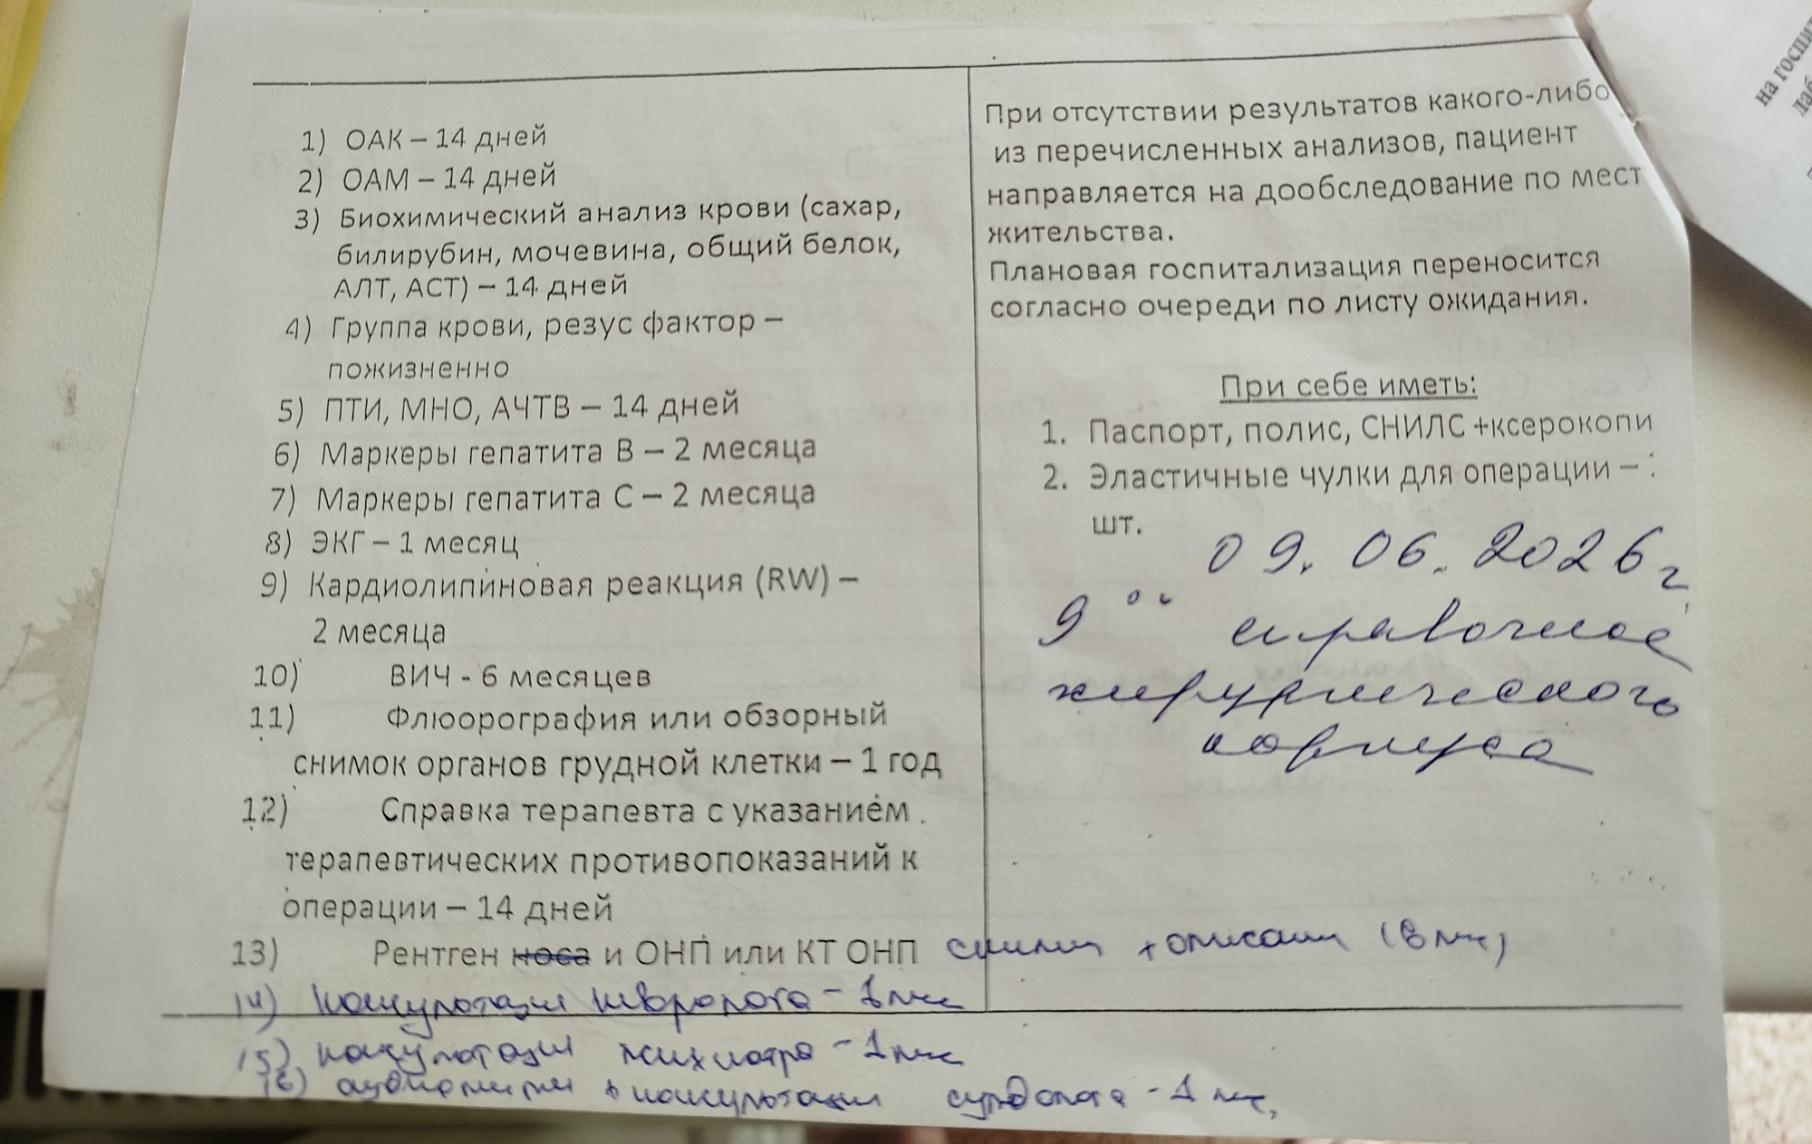 1) ОАК – 14 дней
2) ОАМ – 14 дней
3) Биохимический анализ крови (сахар,
билирубин, мочевина, общий белок,
АЛТ, АСТ) – 14 дней
4) Группа крови, резус фактор –
пожизненно
5) ПТИ, МНО, АЧТВ – 14 дней
6) Маркеры гепатита В – 2 месяца
7) Маркеры гепатита С – 2 месяца
8) ЭКГ – 1 месяц
9) Кардиолипиновая реакция (RW) –
2 месяца
10) ВИЧ - 6 месяцев
11) Флюорография или обзорный
снимок органов грудной клетки – 1 год
12) Справка терапевта с указанием
терапевтических противопоказаний к
операции – 14 дней
13) Рентген носа и ОНП или КТ ОНП снимки + описание (6 мес)
14) Консультация невролога –
15) консультация психиатра – 1 мес
16) аудиометрия консультация сурдолога - 1 мес,
При отсутствии результатов какого-либо
из перечисленных анализов, пациент
направляется на дообследование по мест
жительства.
Плановая госпитализация переносится
согласно очереди по листу ожидания.
При себе иметь:
1. Паспорт, полис, СНИЛС +ксерокопи
2. Эластичные чулки для операции –
шт.
09. 06. 2026 г
9 00 справочное
хирургического
корпуса
на госпи